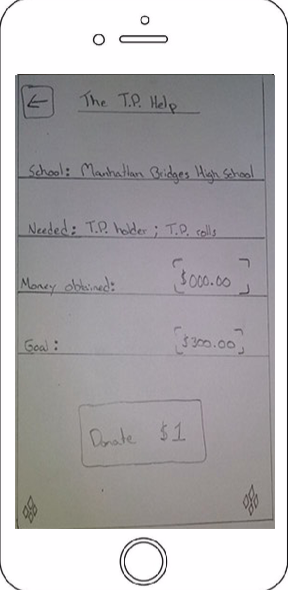 The T.P. Help
School: Manhattan Bridges High School
Needed: T.P. holder ; T.P. rolls
Money obtained: $000.00
Goal: $300.00
Donate $1